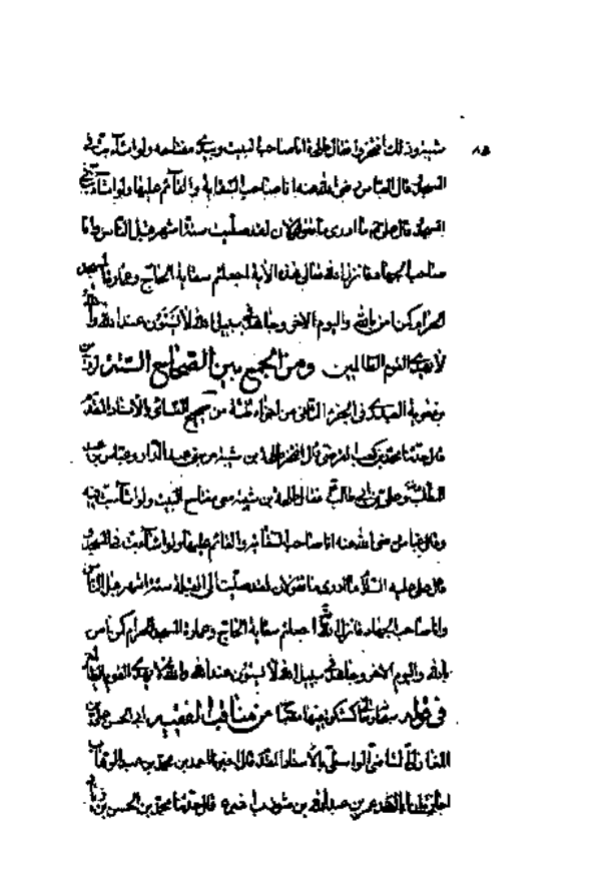 شيبة وذلك أفخروا فقال طلحة انا صاحب البيت وبيدي مفتاحه ولو اشاء بت في ٨٥
المسجد قال العباس رضي الله عنه انا صاحب السقاية والقائم عليها ولو اشاء بت في
المسجد قال علي ما ادرى ما تقولان لقد صليت ستة اشهر قبل الناس وانا
صاحب الجهاد فانزل الله تعالى هذه الآية اجعلتم سقاية الحاج وعمارة المسجد
الحرام كمن امن بالله واليوم الاخر وجاهد في سبيل الله لا يستوون عند الله والله
لا يهدى القوم الظالمين ومن الجمع بين الصحاح الستة لرزين
بن معوية العبدري في الجزء الثاني من اجزاء ثلثة من صحيح النسائي بالاسناد المقدم
قال حدثنا محمد بن كعب القرضي قال افتخر طلحة بن شيبة من بني عبد الدار وعباس بن عبد
المطلب وعلي بن ابي طالب فقال طلحة بن شيبة معي مفتاح البيت ولو اشاء بت فيه
وقال عباس رضي الله عنه انا صاحب السقاية والقائم عليها ولو اشاء بت في المسجد
قال علي عليه السلام ما ادرى ما تقولان لقد صليت الى القبلة ستة اشهر قبل الناس
وانا صاحب الجهاد فانزل الله اجعلتم سقاية الحاج وعمارة المسجد الحرام كمن امن
بالله واليوم الاخر وجاهد في سبيل الله لا يستوون عند الله والله لا يهدى القوم الظالمين
في قوله كمشكوة فيها مصباح من مناقب الفقيه ابي الحسن علي بن
المغازلي الشافعي الواسطي بالاسناد المقدم قال اخبرنا احمد بن محمد بن عبد الوهاب
عمر بن عبد الله بن شوذب اخبرهم قال حدثنا محمد بن الحسن بن